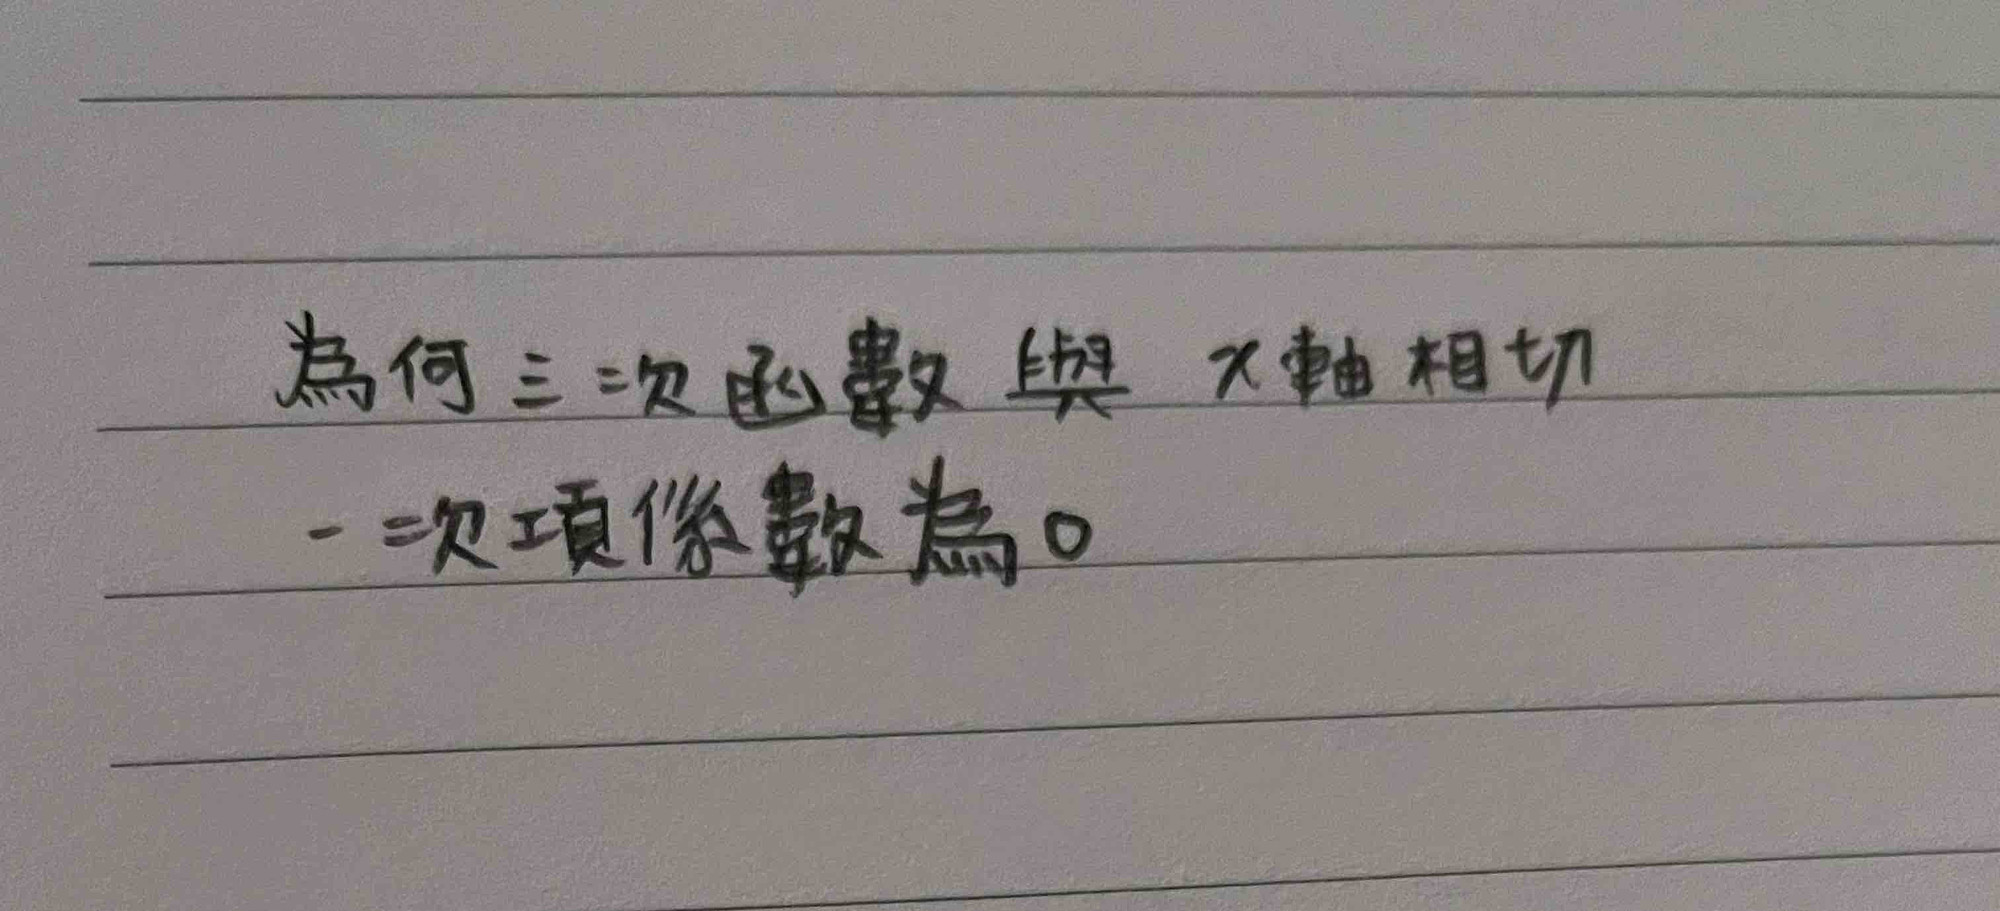 為何三次函數與x軸相切
一次項係數為0